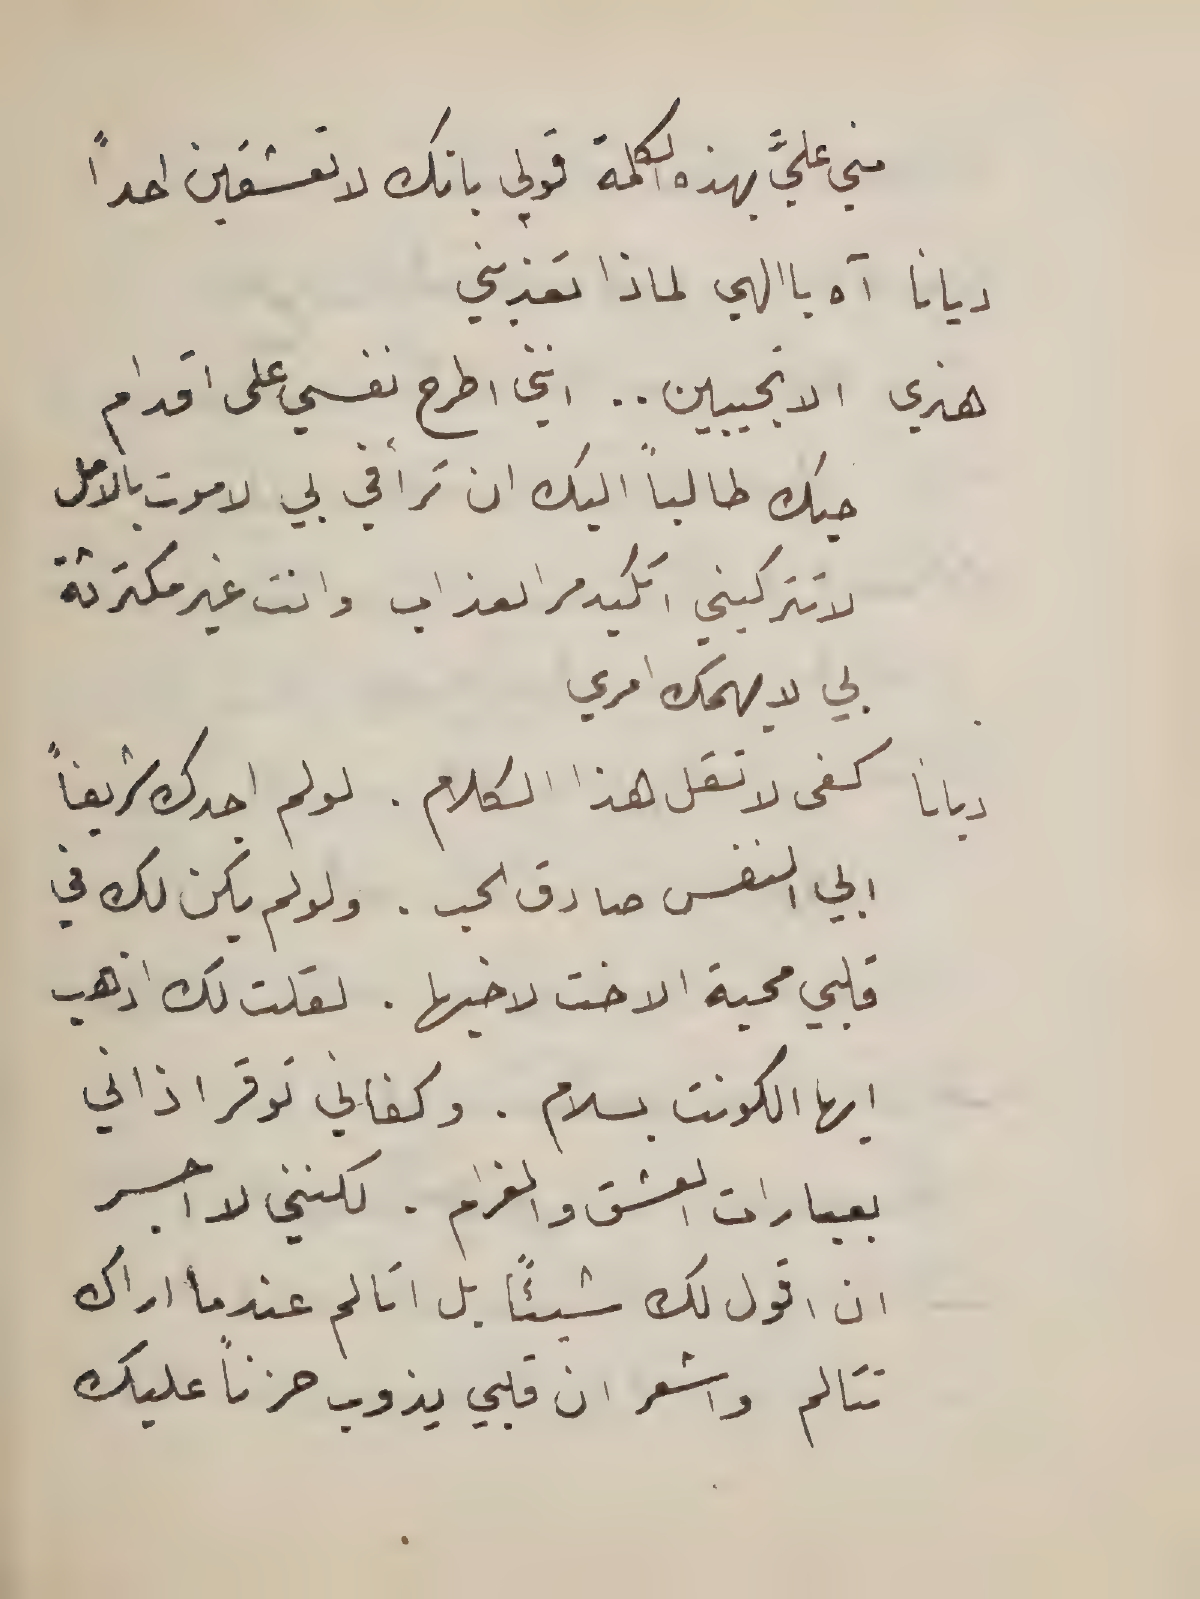 مني عليَّ بهذه الكلمة قولي بانك لا تعشقين احداً
ديانا آه ياالهي لماذا تعذبني
هنري الا تجيبين .. انني اطرح نفسي على اقدام
حبك طالباً اليك ان ترأفي بي لاموت بالامل
لا تتركيني اتكبد مر العذاب وانت غير مكترثة
بي لا يهمك امري
ديانا كفى لا تقل هذا الكلام . لولم اجدك شريفاً
ابي النفس صادق الحب . ولولم يكن لك في
قلبي محبة الاخت لاخيها . لقلت لك اذهب
ايها الكونت بسلام . وكفاني توقر اذاني
بعبارات العشق والغرام . لكنني لا اجسر
ان اقول لك شيئًا بل اتالم عندما اراك
تتالم واشعر ان قلبي يذوب حزناً عليك